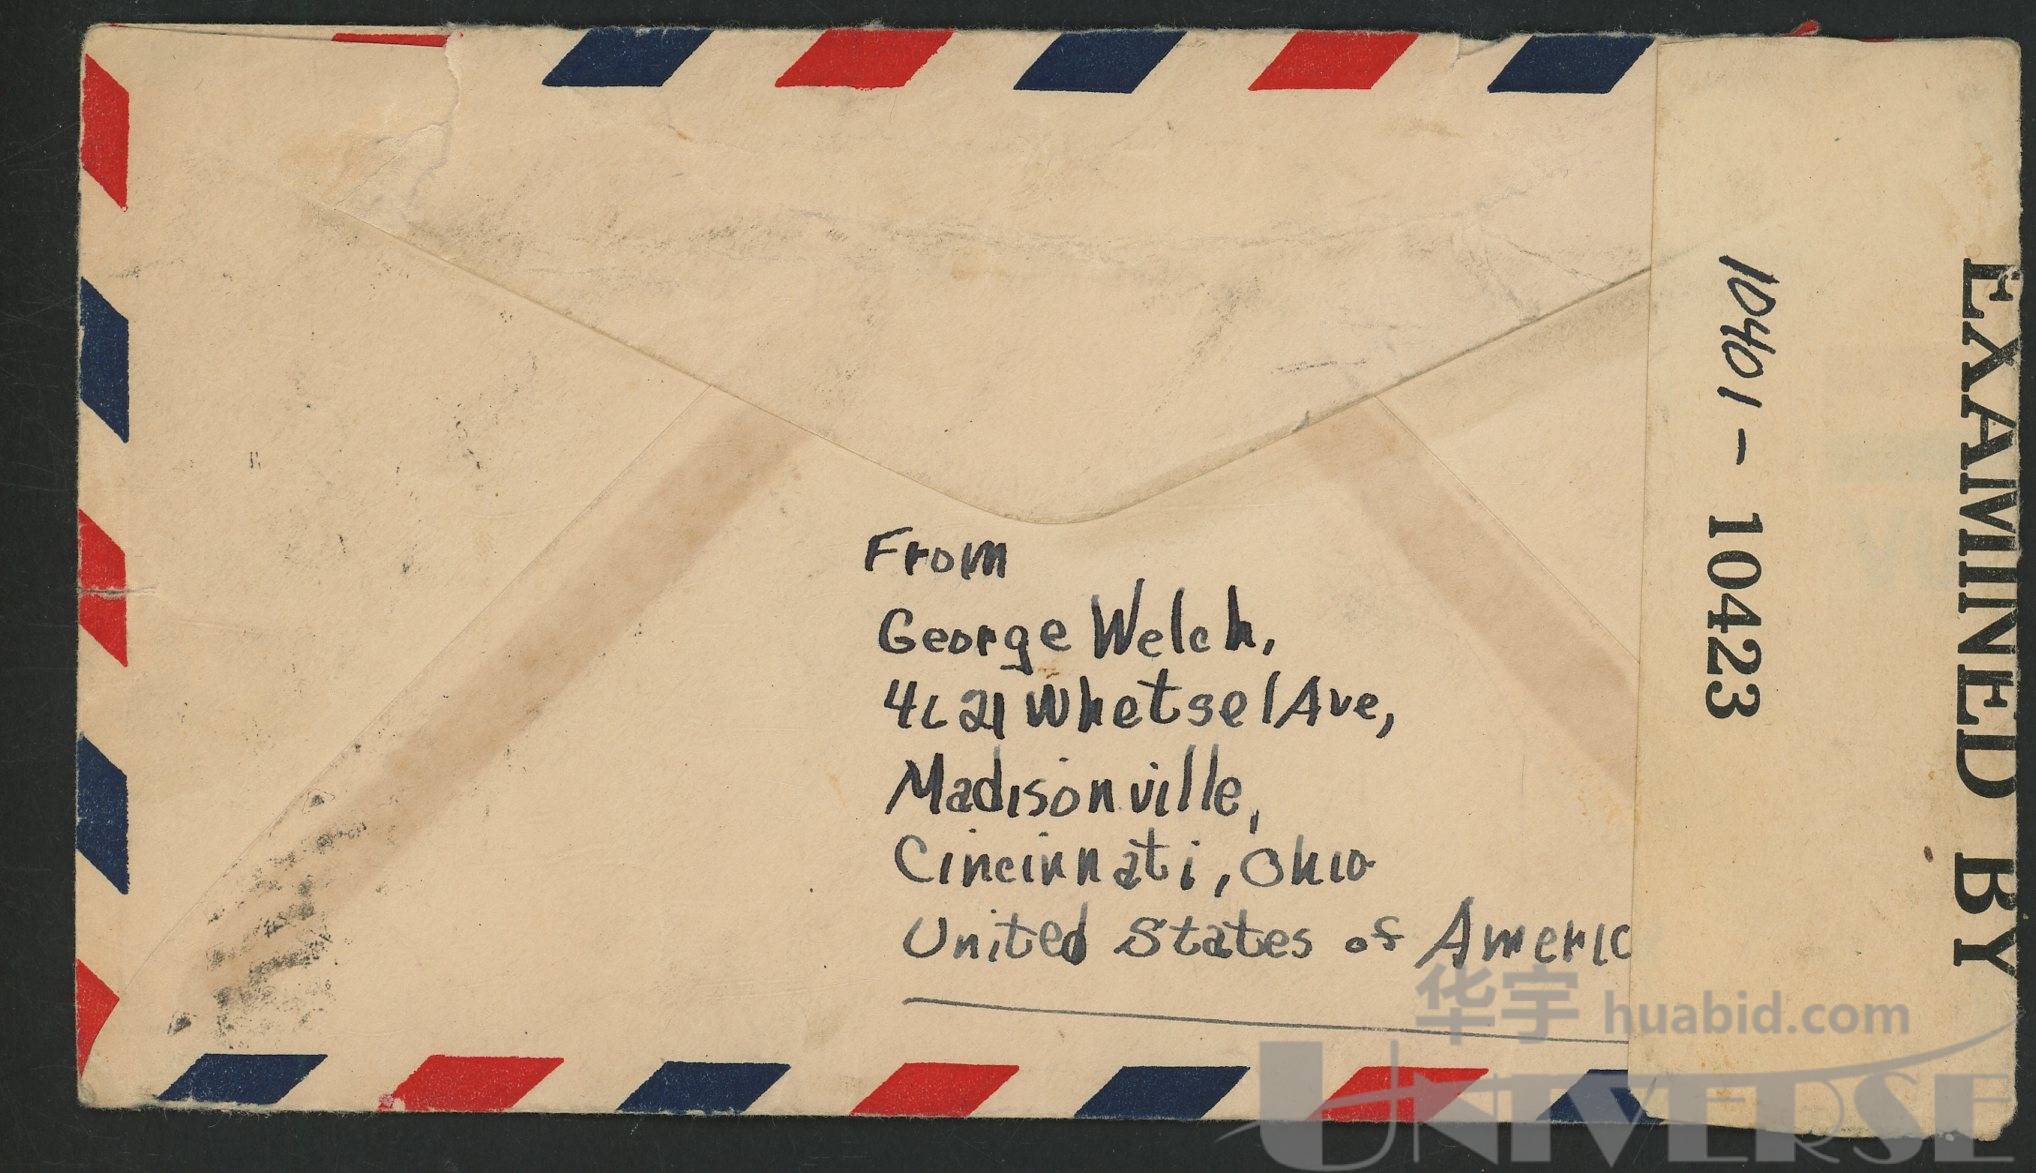 From
George Welch,
Whetsel Ave,
Madisonville,
Cincinnati, Ohio
United States of Americ
10401 - 10423
EXAMINED BY
华宇 huabid.com
UNIVERSE